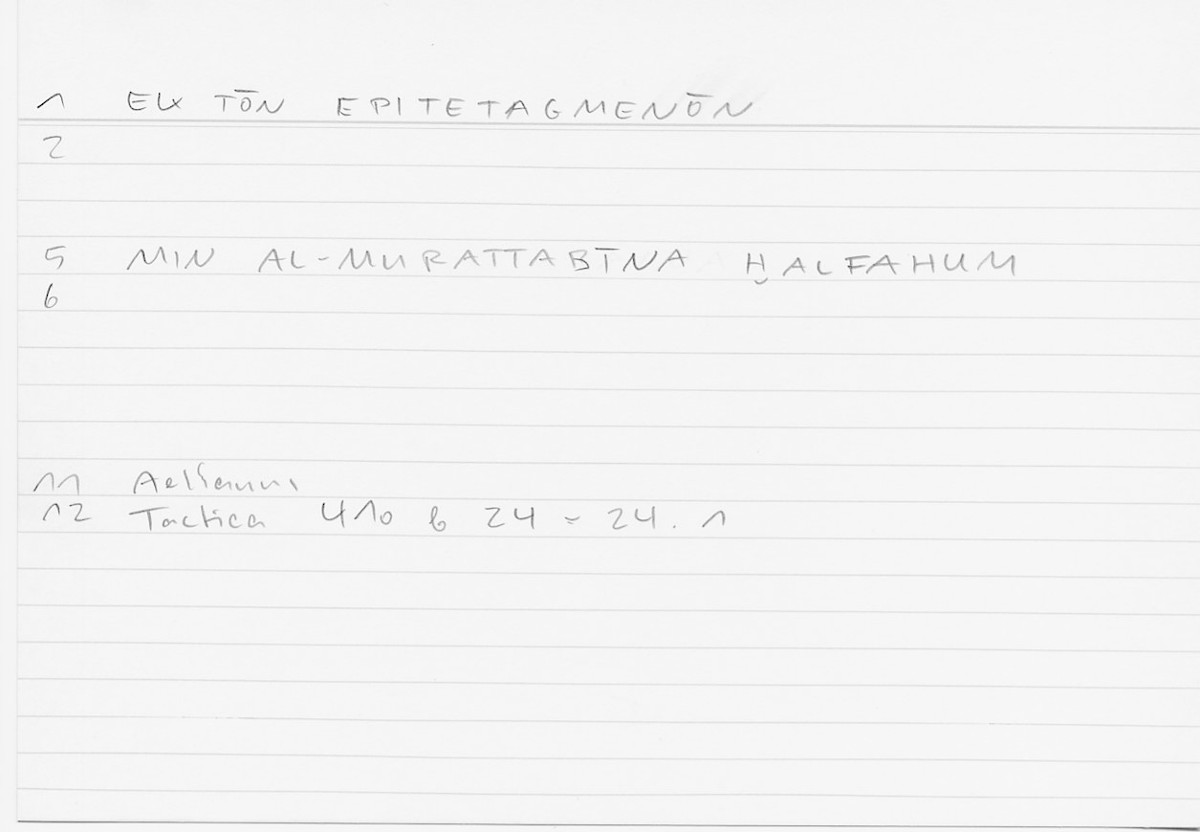 1 EK TŌN EPITETAGMENŌN
2
5 MIN AL-MURATTABĪNA ḪALFAHUM
6
11 Aelianus
12 Tactica 410 b 24 = 24. 1